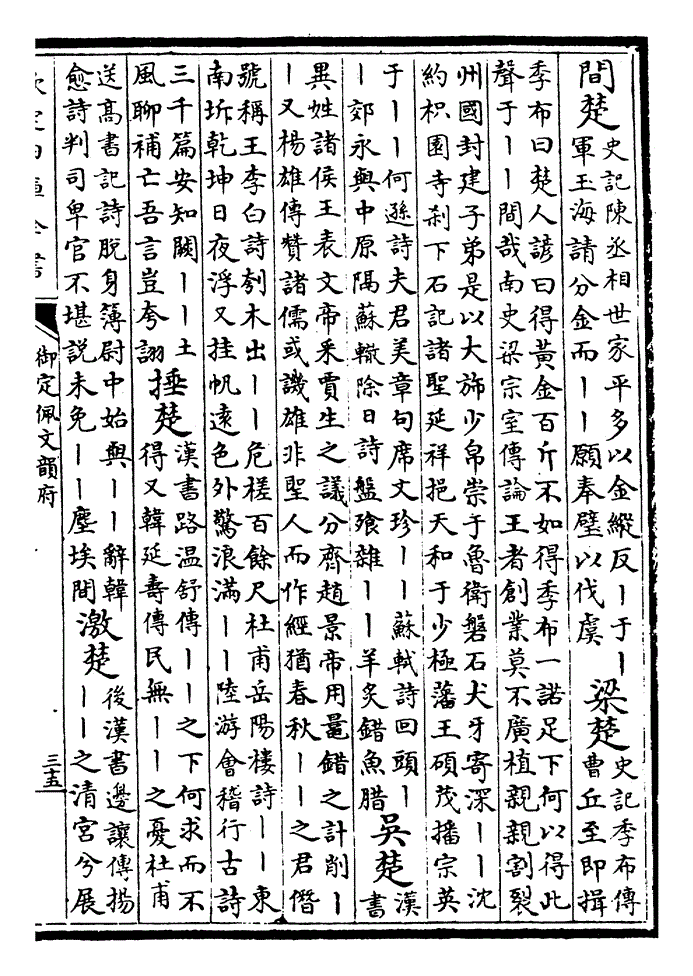 間楚
史記陳丞相世家平多以金縱反丨于丨
軍玉海請分金而丨丨願奉璧以伐虞
梁楚
史記季布傳
曹丘至即揖
季布曰楚人諺曰得黃金百斤不如得季布一諾足下何以得此
聲于丨丨間哉南史梁宗室傳論王者創業莫不廣植親親割裂
州國封建子弟是以大旆少帛崇于魯衛磐石犬牙寄深丨丨沈
約枳園寺刹下石記諸聖延祥挹天和于少極藩王碩茂播宗英
于丨丨何遜詩夫君美章句席文珍丨丨蘇軾詩回頭丨
丨郊永與中原隔蘇轍除日詩盤飱雜丨丨羊炙錯魚腊
吳楚
漢
書
異姓諸侯王表文帝采賈生之議分齊趙景帝用鼂錯之計削丨
丨又楊雄傳贊諸儒或譏雄非聖人而作經猶春秋丨丨之君僭
號稱王李白詩刳木出丨丨危槎百餘尺杜甫岳陽樓詩丨丨東
南坼乾坤日夜浮又挂帆遠色外驚浪滿丨丨陸游會稽行古詩
三千篇安知闕丨丨土
風聊補亡吾言豈夸詡
捶楚
漢書路温舒傳丨丨之下何求而不
得又韓延壽傳民無丨丨之憂杜甫
送高書記詩脫身簿尉中始與丨丨辭韓
愈詩判司卑官不堪説未免丨丨塵埃間
激楚
後漢書邊讓傳揚
丨丨之清宮兮展
欽定四庫全書
御定佩文韻府
三十五